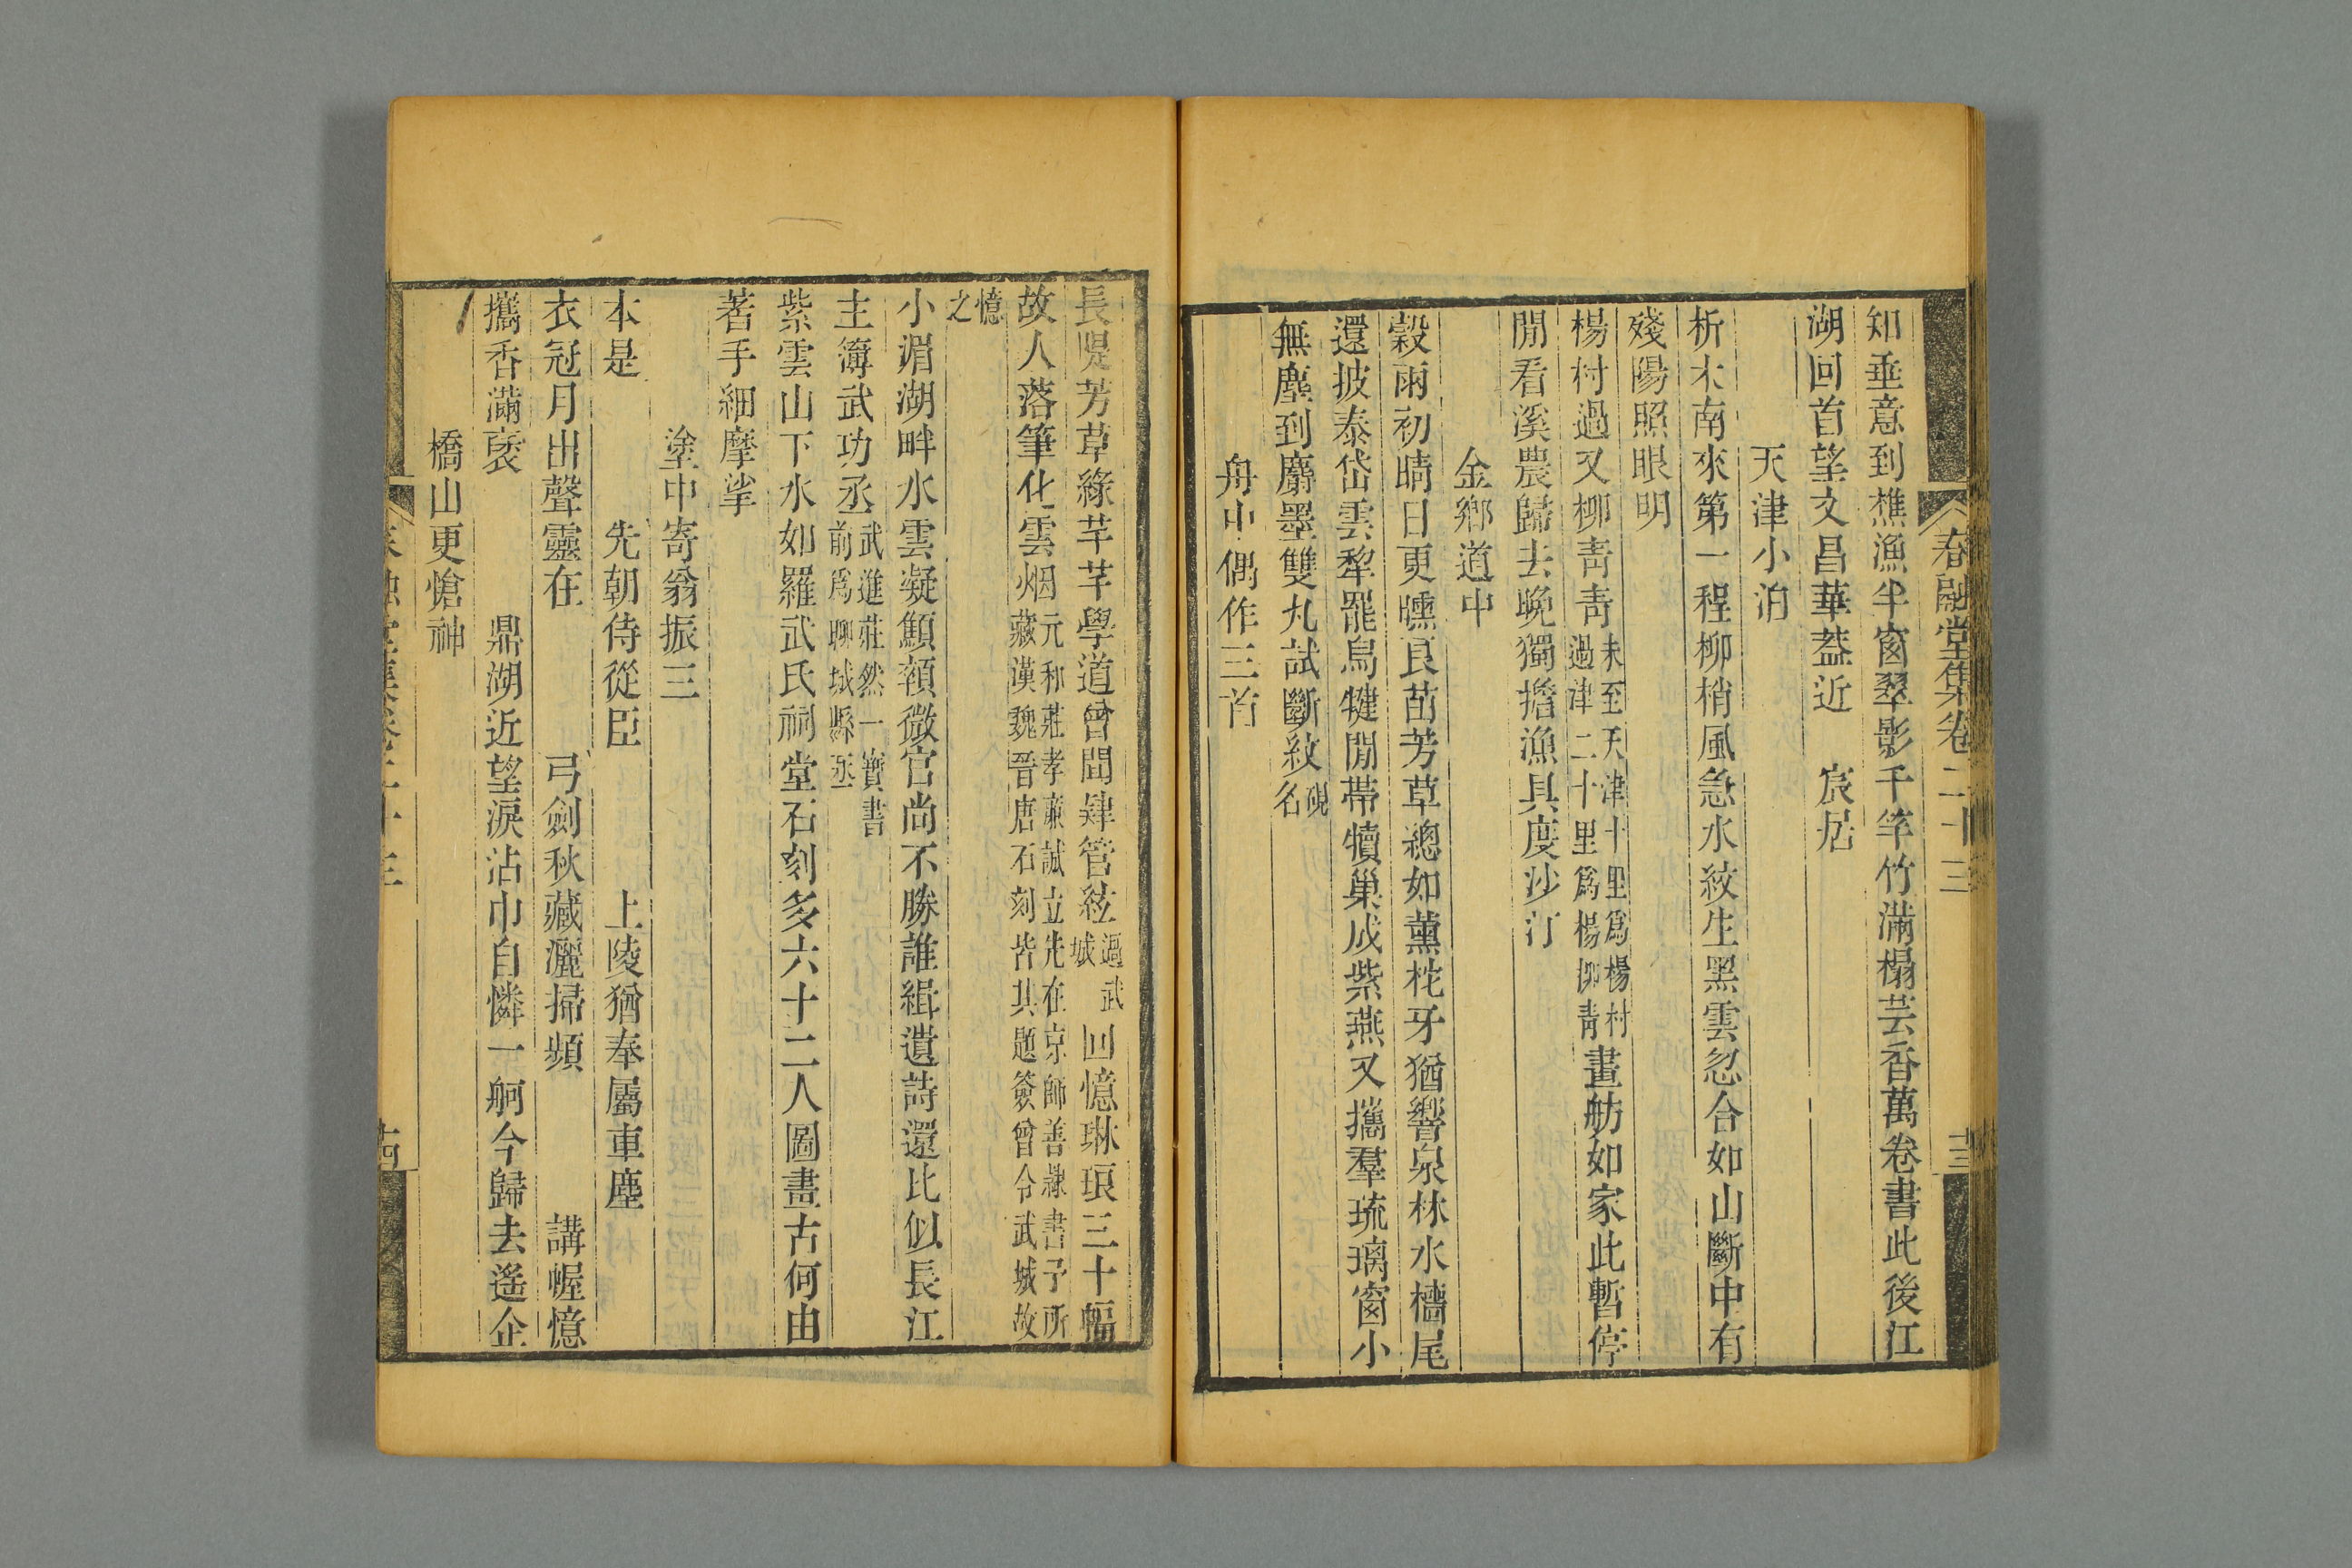 春融堂集卷二十三
十三
知垂意到樵漁半窗翠影千竿竹滿榻芸香萬卷書此後江
湖回首望文昌華葢近 宸居
天津小泊
析木南來第一程柳梢風急水紋生黑雲忽合如山斷中有
殘陽照眼明
楊村過又柳青青未至天津十里爲楊村過津二十里爲楊柳青畫舫如家此暫停
閒看溪農歸去晚獨擔漁具度沙汀
金鄉道中
穀雨初晴日更曛良苗芳草總如薰柁牙猶響泉林水檣尾
還披泰岱雲犂罷烏犍閒帶犢巢成紫燕又攜羣琉璃窗小
無塵到麝墨雙丸試斷紋硯名
舟中偶作三首
長隄芳草綠芊芊學道曾聞肄管絃過武城回憶琳琅三十幅
故人落筆化雲烟元和莊孝亷誠立先在京師善隸書予所藏漢魏晉唐石刻皆其題簽曾令武城故
憶之
小湄湖畔水雲凝顦顇微官尚不勝誰緝遺詩還比似長江
主簿武功丞武進莊然一寳書前爲聊城縣丞
紫雲山下水如羅武氏祠堂石刻多六十二人圖畫古何由
著手細摩挲
塗中寄翁振三
本是 先朝侍從臣 上陵猶奉屬車塵 弓劍秋藏灑掃頻 講幄憶
衣冠月出聲靈在
攜香滿褎 鼎湖近望淚沾巾自憐一舸今歸去遙企
橋山更愴神